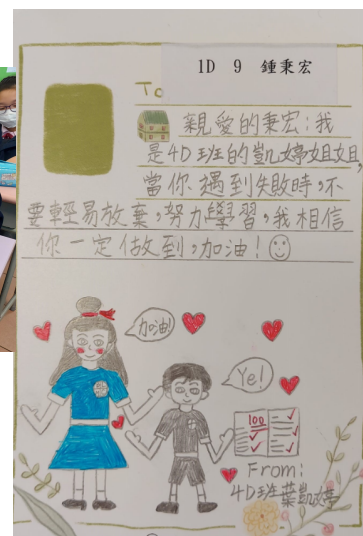 1D 9 鍾秉宏
To
親愛的秉宏：我
是4D班的凱婷姐姐，
當你遇到失敗時，不
要輕易放棄，努力學習，我相信
你一定做到，加油！
加油!
Ye!
100
From:
4D班葉凱婷